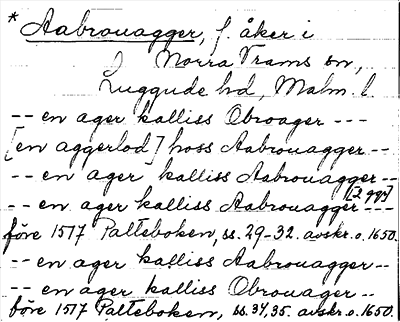 * Aabrouagger, f. åker i
Norra Vrams sn,
Luggude hd, Malm. l
-- en ager kalliss Obroager ---
[en aggerlod] hoss Aabrouagger --
-- en ager kalliss Aabrouagger --
[2 ggr]
-- en ager kalliss Aabrouagger ---
före 1517 Palteboken, ss. 29-32. avskr. o. 1650.
-- en ager kalliss Aabrouagger --
-- en ager kalliss Obrouager --
före 1517 Palteboken, ss. 34, 35. avskr. o. 1650.